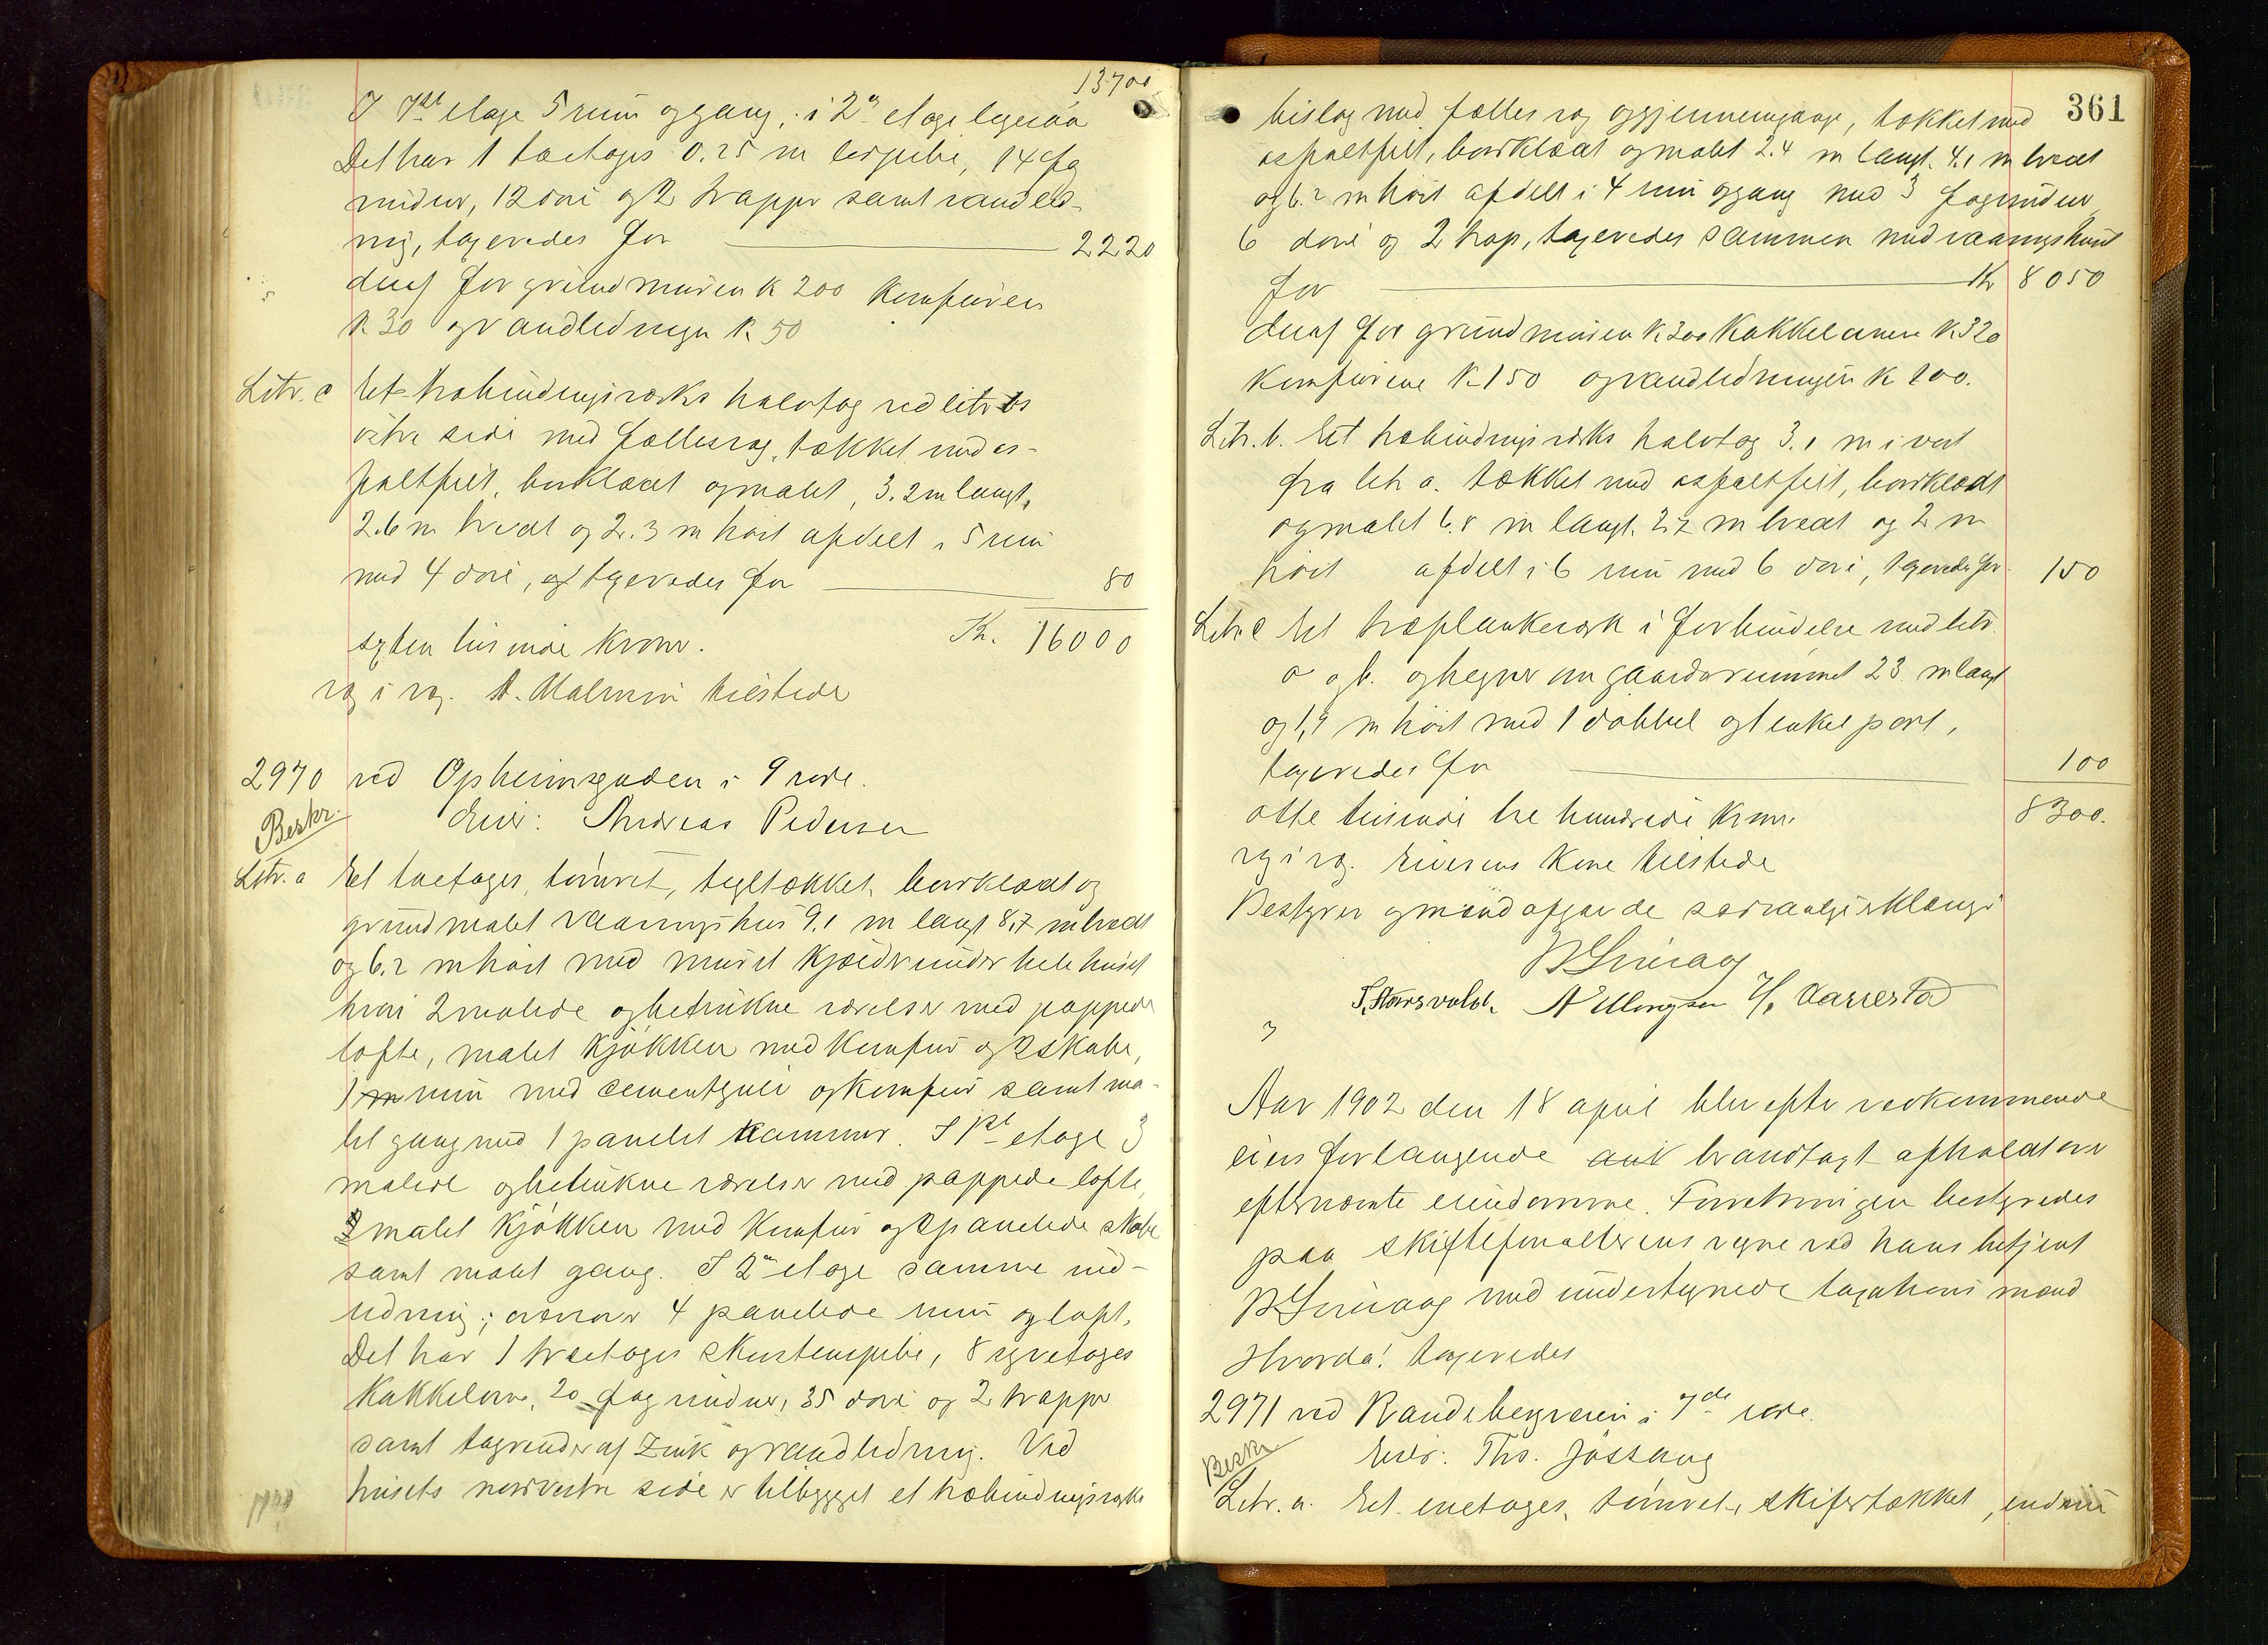 13700
I 1ste etage 5 rum og gang, i 2den etage ligesaa
Det har 1 toetages 0.25 m lerpibe, 14 fag
vinduer, 12 døre og 2 trapper samt vandled-
ning, taxeredes for 2220
deraf for grundmuren k 200 komfuren
k 30 og vandledningen k 50
Litr. c Et træbindingsværks halvtag ved litr bs
østre side med fælles væg, tækket med as-
faltfilt, bordklædt og malet, 3.2 m langt,
2.6 m bredt og 2.3 m høit afdelt i 5 rum
med 4 døre, taxeredes for 80
sexten tusinde kroner. Kr. 16000
vg i vg. A. Malmin tilstede
2970 ved Opheimsgaden i 9 rode.
Beskr. Eier: Andreas Pedersen
Litr. a Et toetages, tømret, tegltækket, bordklædt og
grundmalet vaaningshus 9.1 m langt 8.7 m bredt
og 6.2 m høit med muret kjælder under hele huset
hvori 2 malede og betrukne værelser med pappede
lofte, malet kjøkken med komfur og 2 skabe,
1 rum med cementgulv og komfur samt ma-
let gang med 1 panelet kammer. I 1ste etage 3
malede og betrukne værelser med pappede lofte,
malet kjøkken med komfur og 2 panelede skabe
samt malet gang. I 2den etage samme ind-
redning; ovenover 4 panelede rum og loft.
Det har 1 treetages skorstenspibe, 8 syvetages
kakkelovne, 20 fag vinduer, 35 døre og 2 trapper
samt tagrender af zink og vandledning. Ved
husets nordvestre side er tilbygget et træbindingsværks
361
bislag med fælles væg og gjennemgange, tækket med
asfaltfilt, bordklædt og malet 2.4 m langt. 4.1 m bredt
og 6.2 m høit afdelt i 4 rum og gang med 3 fag vinduer
6 døre og 2 trap, taxeredes sammen med vaaningshuset
for Kr 8050
deraf for grundmuren k 300 kakkelovnene k 320
komfurene k 150 og vandledningen k 100.
Litr. b. Et træbindingsværks halvtag 3.1 m i vest
fra litr a. tækket med asfaltfilt, bordklædt
og malet 6.8 m langt. 2.7 m bredt og 2 m
høit afdelt i 6 rum med 6 døre, taxeredes for 150
Litr. c Et træplankeværk i forbindelse med litr.
a og b. og hegner om gaardsrummet 23 m langt
og 1,9 m høit med 1 dobbel og 1 enkel port,
taxeredes for 100
otte tusinde tre hundrede kroner 8300.
vg i vg. Eierens kone tilstede
Bestyrer og mænd afgav de sædvanlige erklæringer
S. Aarsvold. N Ellingsen
Aar 1902 den 18 april blev efter vedkommende
eiers forlangende brandtaxt afholdt over
efternævnte eiendomme. Forretningen bestyredes
paa skifteforvalterens vegne ved hans betjent
med undertegnede taxationsmænd
Hvorda! taxeredes
2971 ved Randebergveien i 7de rode.
Beskr Eier: Ths. Jøssang
Litr. a. Et enetages, tømret, skifertækket, endnu